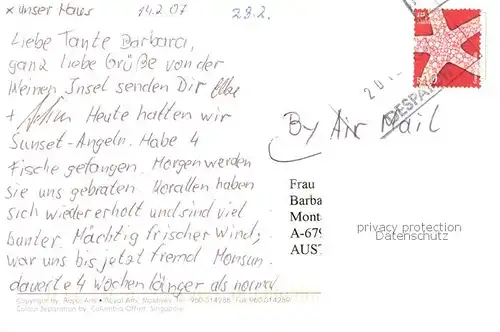 x unser Haus 14.2.07 28.2.
Liebe Tante Barbara,
ganz liebe Grüße von der
kleinen Insel senden Dir
+ Heute hatten wir
Sunset-Angeln. Habe 4
Fische gefangen. Morgen werden
sie uns gebraten. Korallen haben
sich wieder erholt und sind viel
bunter. Mächtig frischer Wind,
war uns bis jetzt fremd. Monsun
dauerte 4 Wochen länger als normal
By Air Mail
Frau
Barba
Mont
A-679
AUST
privacy protection
Datenschutz
DESPA
Copyright by: Royal Arts • Royal Arts, Maldives Tel: 960-314286 Fax 960-314289
Colour Separation by: Columbia Offset, Singapore